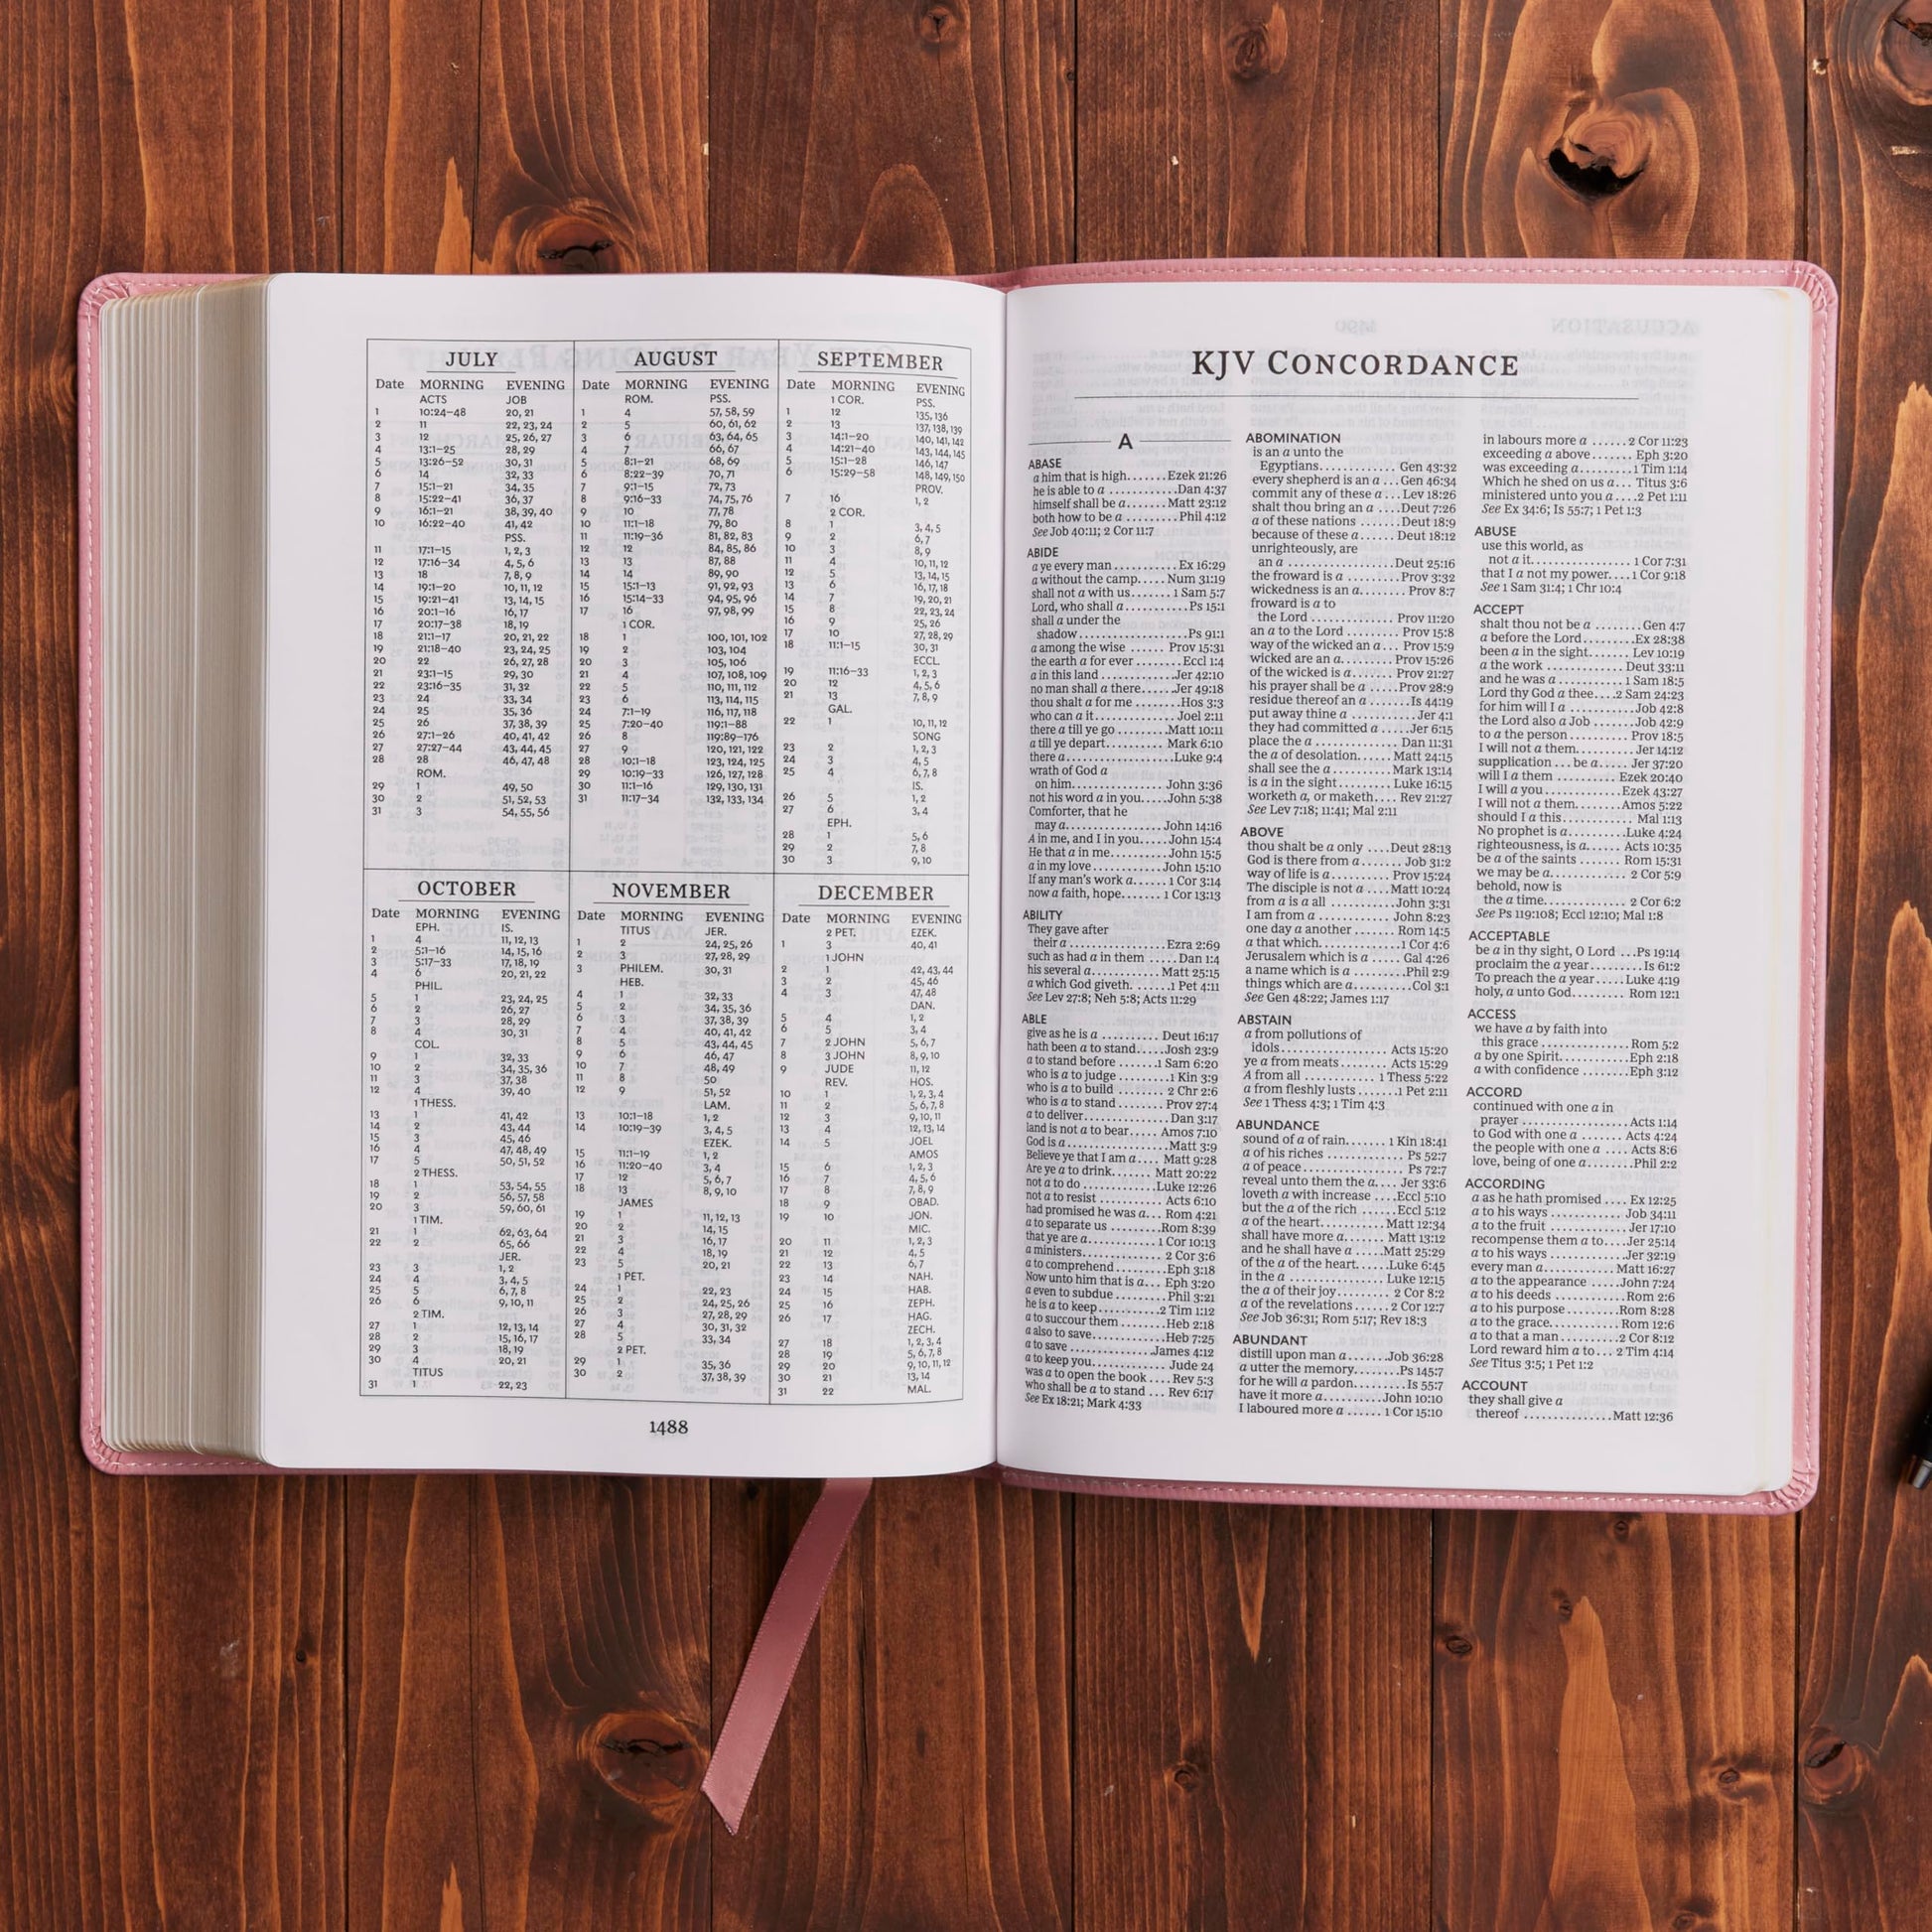 JULY
Date MORNING EVENING
ACTS JOB
1 10:24–48 20, 21
2 11 22, 23, 24
3 12 25, 26, 27
4 13:1–25 28, 29
5 13:26–52 30, 31
6 14 32, 33
7 15:1–21 34, 35
8 15:22–41 36, 37
9 16:1–21 38, 39, 40
10 16:22–40 41, 42
PSS.
11 17:1–15 1, 2, 3
12 17:16–34 4, 5, 6
13 18 7, 8, 9
14 19:1–20 10, 11, 12
15 19:21–41 13, 14, 15
16 20:1–16 16, 17
17 20:17–38 18, 19
18 21:1–17 20, 21, 22
19 21:18–40 23, 24, 25
20 22 26, 27, 28
21 23:1–15 29, 30
22 23:16–35 31, 32
23 24 33, 34
24 25 35, 36
25 26 37, 38, 39
26 27:1–26 40, 41, 42
27 27:27–44 43, 44, 45
28 28 46, 47, 48
ROM.
29 1 49, 50
30 2 51, 52, 53
31 3 54, 55, 56
AUGUST
Date MORNING EVENING
ROM. PSS.
1 4 57, 58, 59
2 5 60, 61, 62
3 6 63, 64, 65
4 7 66, 67
5 8:1–21 68, 69
6 8:22–39 70, 71
7 9:1–15 72, 73
8 9:16–33 74, 75, 76
9 10 77, 78
10 11:1–18 79, 80
11 11:19–36 81, 82, 83
12 12 84, 85, 86
13 13 87, 88
14 14 89, 90
15 15:1–13 91, 92, 93
16 15:14–33 94, 95, 96
17 16 97, 98, 99
1 COR.
18 1 100, 101, 102
19 2 103, 104
20 3 105, 106
21 4 107, 108, 109
22 5 110, 111, 112
23 6 113, 114, 115
24 7:1–19 116, 117, 118
25 7:20–40 119:1–88
26 8 119:89–176
27 9 120, 121, 122
28 10:1–18 123, 124, 125
29 10:19–33 126, 127, 128
30 11:1–16 129, 130, 131
31 11:17–34 132, 133, 134
SEPTEMBER
Date MORNING EVENING
1 COR. PSS.
1 12 135, 136
2 13 137, 138, 139
3 14:1–20 140, 141, 142
4 14:21–40 143, 144, 145
5 15:1–28 146, 147
6 15:29–58 148, 149, 150
PROV.
7 16 1, 2
2 COR.
8 1 3, 4, 5
9 2 6, 7
10 3 8, 9
11 4 10, 11, 12
12 5 13, 14, 15
13 6 16, 17, 18
14 7 19, 20, 21
15 8 22, 23, 24
16 9 25, 26
17 10 27, 28, 29
18 11:1–15 30, 31
ECCL.
19 11:16–33 1, 2, 3
20 12 4, 5, 6
21 13 7, 8, 9
GAL.
22 1 10, 11, 12
SONG
23 2 1, 2, 3
24 3 4, 5
25 4 6, 7, 8
IS.
26 5 1, 2
27 6 3, 4
EPH.
28 1 5, 6
29 2 7, 8
30 3 9, 10
OCTOBER
Date MORNING EVENING
EPH. IS.
1 4 11, 12, 13
2 5:1–16 14, 15, 16
3 5:17–33 17, 18, 19
4 6 20, 21, 22
PHIL.
5 1 23, 24, 25
6 2 26, 27
7 3 28, 29
8 4 30, 31
COL.
9 1 32, 33
10 2 34, 35, 36
11 3 37, 38
12 4 39, 40
1 THESS.
13 1 41, 42
14 2 43, 44
15 3 45, 46
16 4 47, 48, 49
17 5 50, 51, 52
2 THESS.
18 1 53, 54, 55
19 2 56, 57, 58
20 3 59, 60, 61
1 TIM.
21 1 62, 63, 64
22 2 65, 66
JER.
23 3 1, 2
24 4 3, 4, 5
25 5 6, 7, 8
26 6 9, 10, 11
2 TIM.
27 1 12, 13, 14
28 2 15, 16, 17
29 3 18, 19
30 4 20, 21
TITUS
31 1 22, 23
NOVEMBER
Date MORNING EVENING
TITUS JER.
1 2 24, 25, 26
2 3 27, 28, 29
3 PHILEM. 30, 31
HEB.
4 1 32, 33
5 2 34, 35, 36
6 3 37, 38, 39
7 4 40, 41, 42
8 5 43, 44, 45
9 6 46, 47
10 7 48, 49
11 8 50
12 9 51, 52
LAM.
13 10:1–18 1, 2
14 10:19–39 3, 4, 5
EZEK.
15 11:1–19 1, 2
16 11:20–40 3, 4
17 12 5, 6, 7
18 13 8, 9, 10
JAMES
19 1 11, 12, 13
20 2 14, 15
21 3 16, 17
22 4 18, 19
23 5 20, 21
1 PET.
24 1 22, 23
25 2 24, 25, 26
26 3 27, 28, 29
27 4 30, 31, 32
28 5 33, 34
2 PET.
29 1 35, 36
30 2 37, 38, 39
DECEMBER
Date MORNING EVENING
2 PET. EZEK.
1 3 40, 41
1 JOHN
2 1 42, 43, 44
3 2 45, 46
4 3 47, 48
DAN.
5 4 1, 2
6 5 3, 4
7 2 JOHN 5, 6, 7
8 3 JOHN 8, 9, 10
9 JUDE 11, 12
REV. HOS.
10 1 1, 2, 3, 4
11 2 5, 6, 7, 8
12 3 9, 10, 11
13 4 12, 13, 14
14 5 JOEL
AMOS
15 6 1, 2, 3
16 7 4, 5, 6
17 8 7, 8, 9
18 9 OBAD.
19 10 JON.
MIC.
20 11 1, 2, 3
21 12 4, 5
22 13 6, 7
23 14 NAH.
24 15 HAB.
25 16 ZEPH.
26 17 HAG.
ZECH.
27 18 1, 2, 3, 4
28 19 5, 6, 7, 8
29 20 9, 10, 11, 12
30 21 13, 14
31 22 MAL.
1488
KJV CONCORDANCE
A
ABASE
a him that is high.......Ezek 21:26
he is able to a ...........Dan 4:37
himself shall be a.......Matt 23:12
both how to be a .........Phil 4:12
See Job 40:11; 2 Cor 11:7
ABIDE
a ye every man...........Ex 16:29
a without the camp.....Num 31:19
shall not a with us.......1 Sam 5:7
Lord, who shall a...........Ps 15:1
shall a under the
shadow...................Ps 91:1
a among the wise ...... Prov 15:31
the earth a for ever......Eccl 1:4
a in this land ............Jer 42:10
no man shall a there....Jer 49:18
thou shalt a for me .......Hos 3:3
who can a it...............Joel 2:11
there a till ye go........Matt 10:11
a till ye depart..........Mark 6:10
there a...................Luke 9:4
wrath of God a
on him...................John 3:36
not his word a in you.....John 5:38
Comforter, that he
may a.................John 14:16
A in me, and I in you.....John 15:4
He that a in me..........John 15:5
a in my love............John 15:10
If any man's work a......1 Cor 3:14
now a faith, hope.......1 Cor 13:13
ABILITY
They gave after
their a .................Ezra 2:69
such as had a in them .....Dan 1:4
his several a............Matt 25:15
a which God giveth. ......1 Pet 4:11
See Lev 27:8; Neh 5:8; Acts 11:29
ABLE
give as he is a .......... Deut 16:17
hath been a to stand.....Josh 23:9
a to stand before .......1 Sam 6:20
who is a to judge .........1 Kin 3:9
who is a to build ........ 2 Chr 2:6
who is a to stand ........ Prov 27:4
a to deliver..............Dan 3:17
land is not a to bear..... Amos 7:10
God is a..................Matt 3:9
Believe ye that I am a.... Matt 9:28
Are ye a to drink....... Matt 20:22
not a to do .............Luke 12:26
not a to resist .......... Acts 6:10
had promised he was a... Rom 4:21
a to separate us ........Rom 8:39
that ye are a............1 Cor 10:13
a ministers.............. 2 Cor 3:6
a to comprehend.........Eph 3:18
Now unto him that is a... Eph 3:20
a even to subdue .........Phil 3:21
he is a to keep...........2 Tim 1:12
a to succour them .......Heb 2:18
a also to save.............Heb 7:25
a to save................James 4:12
a to keep you............ Jude 24
was a to open the book....Rev 5:3
who shall be a to stand ... Rev 6:17
See Ex 18:21; Mark 4:33
ABOMINATION
is an a unto the
Egyptians............ Gen 43:32
every shepherd is an a ...Gen 46:34
commit any of these a ...Lev 18:26
shalt thou bring an a ....Deut 7:26
a of these nations .......Deut 18:9
because of these a...... Deut 18:12
unrighteously, are
an a ................Deut 25:16
the froward is a .........Prov 3:32
wickedness is an a....... Prov 8:7
froward is a to
the Lord ............ Prov 11:20
an a to the Lord ........ Prov 15:8
way of the wicked an a... Prov 15:9
wicked are an a......... Prov 15:26
of the wicked is a....... Prov 21:27
his prayer shall be a .....Prov 28:9
residue thereof an a .......Is 44:19
put away thine a ...........Jer 4:1
they had committed a .....Jer 6:15
place the a ..............Dan 11:31
the a of desolation...... Matt 24:15
shall see the a..........Mark 13:14
is a in the sight........ Luke 16:15
worketh a, or maketh.... Rev 21:27
See Lev 7:18; 11:41; Mal 2:11
ABOVE
thou shalt be a only ....Deut 28:13
God is there from a....... Job 31:2
way of life is a.......... Prov 15:24
The disciple is not a ....Matt 10:24
from a is a all ..........John 3:31
I am from a ............John 8:23
one day a another ....... Rom 14:5
a that which.............1 Cor 4:6
Jerusalem which is a ..... Gal 4:26
a name which is a ........Phil 2:9
things which are a.........Col 3:1
See Gen 48:22; James 1:17
ABSTAIN
a from pollutions of
idols................. Acts 15:20
ye a from meats........ Acts 15:29
A from all ............ 1 Thess 5:22
a from fleshly lusts .......1 Pet 2:11
See 1 Thess 4:3; 1 Tim 4:3
ABUNDANCE
sound of a of rain....... 1 Kin 18:41
a of his riches ............ Ps 52:7
a of peace............... Ps 72:7
reveal unto them the a.... Jer 33:6
loveth a with increase ....Eccl 5:10
but the a of the rich ......Eccl 5:12
a of the heart.......... Matt 12:34
shall have more a....... Matt 13:12
and he shall have a .....Matt 25:29
of the a of the heart......Luke 6:45
in the a ................ Luke 12:15
the a of their joy......... 2 Cor 8:2
a of the revelations ...... 2 Cor 12:7
See Job 36:31; Rom 5:17; Rev 18:3
ABUNDANT
distill upon man a.......Job 36:28
a utter the memory.......Ps 145:7
for he will a pardon....... Is 55:7
have it more a..........John 10:10
I laboured more a ...... 1 Cor 15:10
in labours more a ......2 Cor 11:23
exceeding a above....... Eph 3:20
was exceeding a.........1 Tim 1:14
Which he shed on us a... Titus 3:6
ministered unto you a....2 Pet 1:11
See Ex 34:6; Is 55:7; 1 Pet 1:3
ABUSE
use this world, as
not a it............... 1 Cor 7:31
that I a not my power....1 Cor 9:18
See 1 Sam 31:4; 1 Chr 10:4
ACCEPT
shalt thou not be a ........Gen 4:7
a before the Lord........Ex 28:38
been a in the sight....... Lev 10:19
a the work ............ Deut 33:11
and he was a ........... 1 Sam 18:5
Lord thy God a thee....2 Sam 24:23
for him will I a ..........Job 42:8
the Lord also a Job .......Job 42:9
to a the person ......... Prov 18:5
I will not a them......... Jer 14:12
supplication ... be a..... Jer 37:20
will I a them .......... Ezek 20:40
I will a you.............Ezek 43:27
I will not a them........Amos 5:22
should I a this........... Mal 1:13
No prophet is a.........Luke 4:24
righteousness, is a...... Acts 10:35
be a of the saints ....... Rom 15:31
we may be a............ 2 Cor 5:9
behold, now is
the a time............. 2 Cor 6:2
See Ps 119:108; Eccl 12:10; Mal 1:8
ACCEPTABLE
be a in thy sight, O Lord ...Ps 19:14
proclaim the a year.........Is 61:2
To preach the a year.....Luke 4:19
holy, a unto God......... Rom 12:1
ACCESS
we have a by faith into
this grace ..............Rom 5:2
a by one Spirit............Eph 2:18
a with confidence ........Eph 3:12
ACCORD
continued with one a in
prayer .................Acts 1:14
to God with one a ....... Acts 4:24
the people with one a .... Acts 8:6
love, being of one a.......Phil 2:2
ACCORDING
a as he hath promised .... Ex 12:25
a to his ways ........... Job 34:11
a to the fruit ............Jer 17:10
recompense them a to....Jer 25:14
a to his ways ...........Jer 32:19
every man a............ Matt 16:27
a to the appearance .....John 7:24
a to his deeds ...........Rom 2:6
a to his purpose.........Rom 8:28
a to the grace...........Rom 12:6
a to that a man..........2 Cor 8:12
Lord reward him a to... 2 Tim 4:14
See Titus 3:5; 1 Pet 1:2
ACCOUNT
they shall give a
thereof ...............Matt 12:36